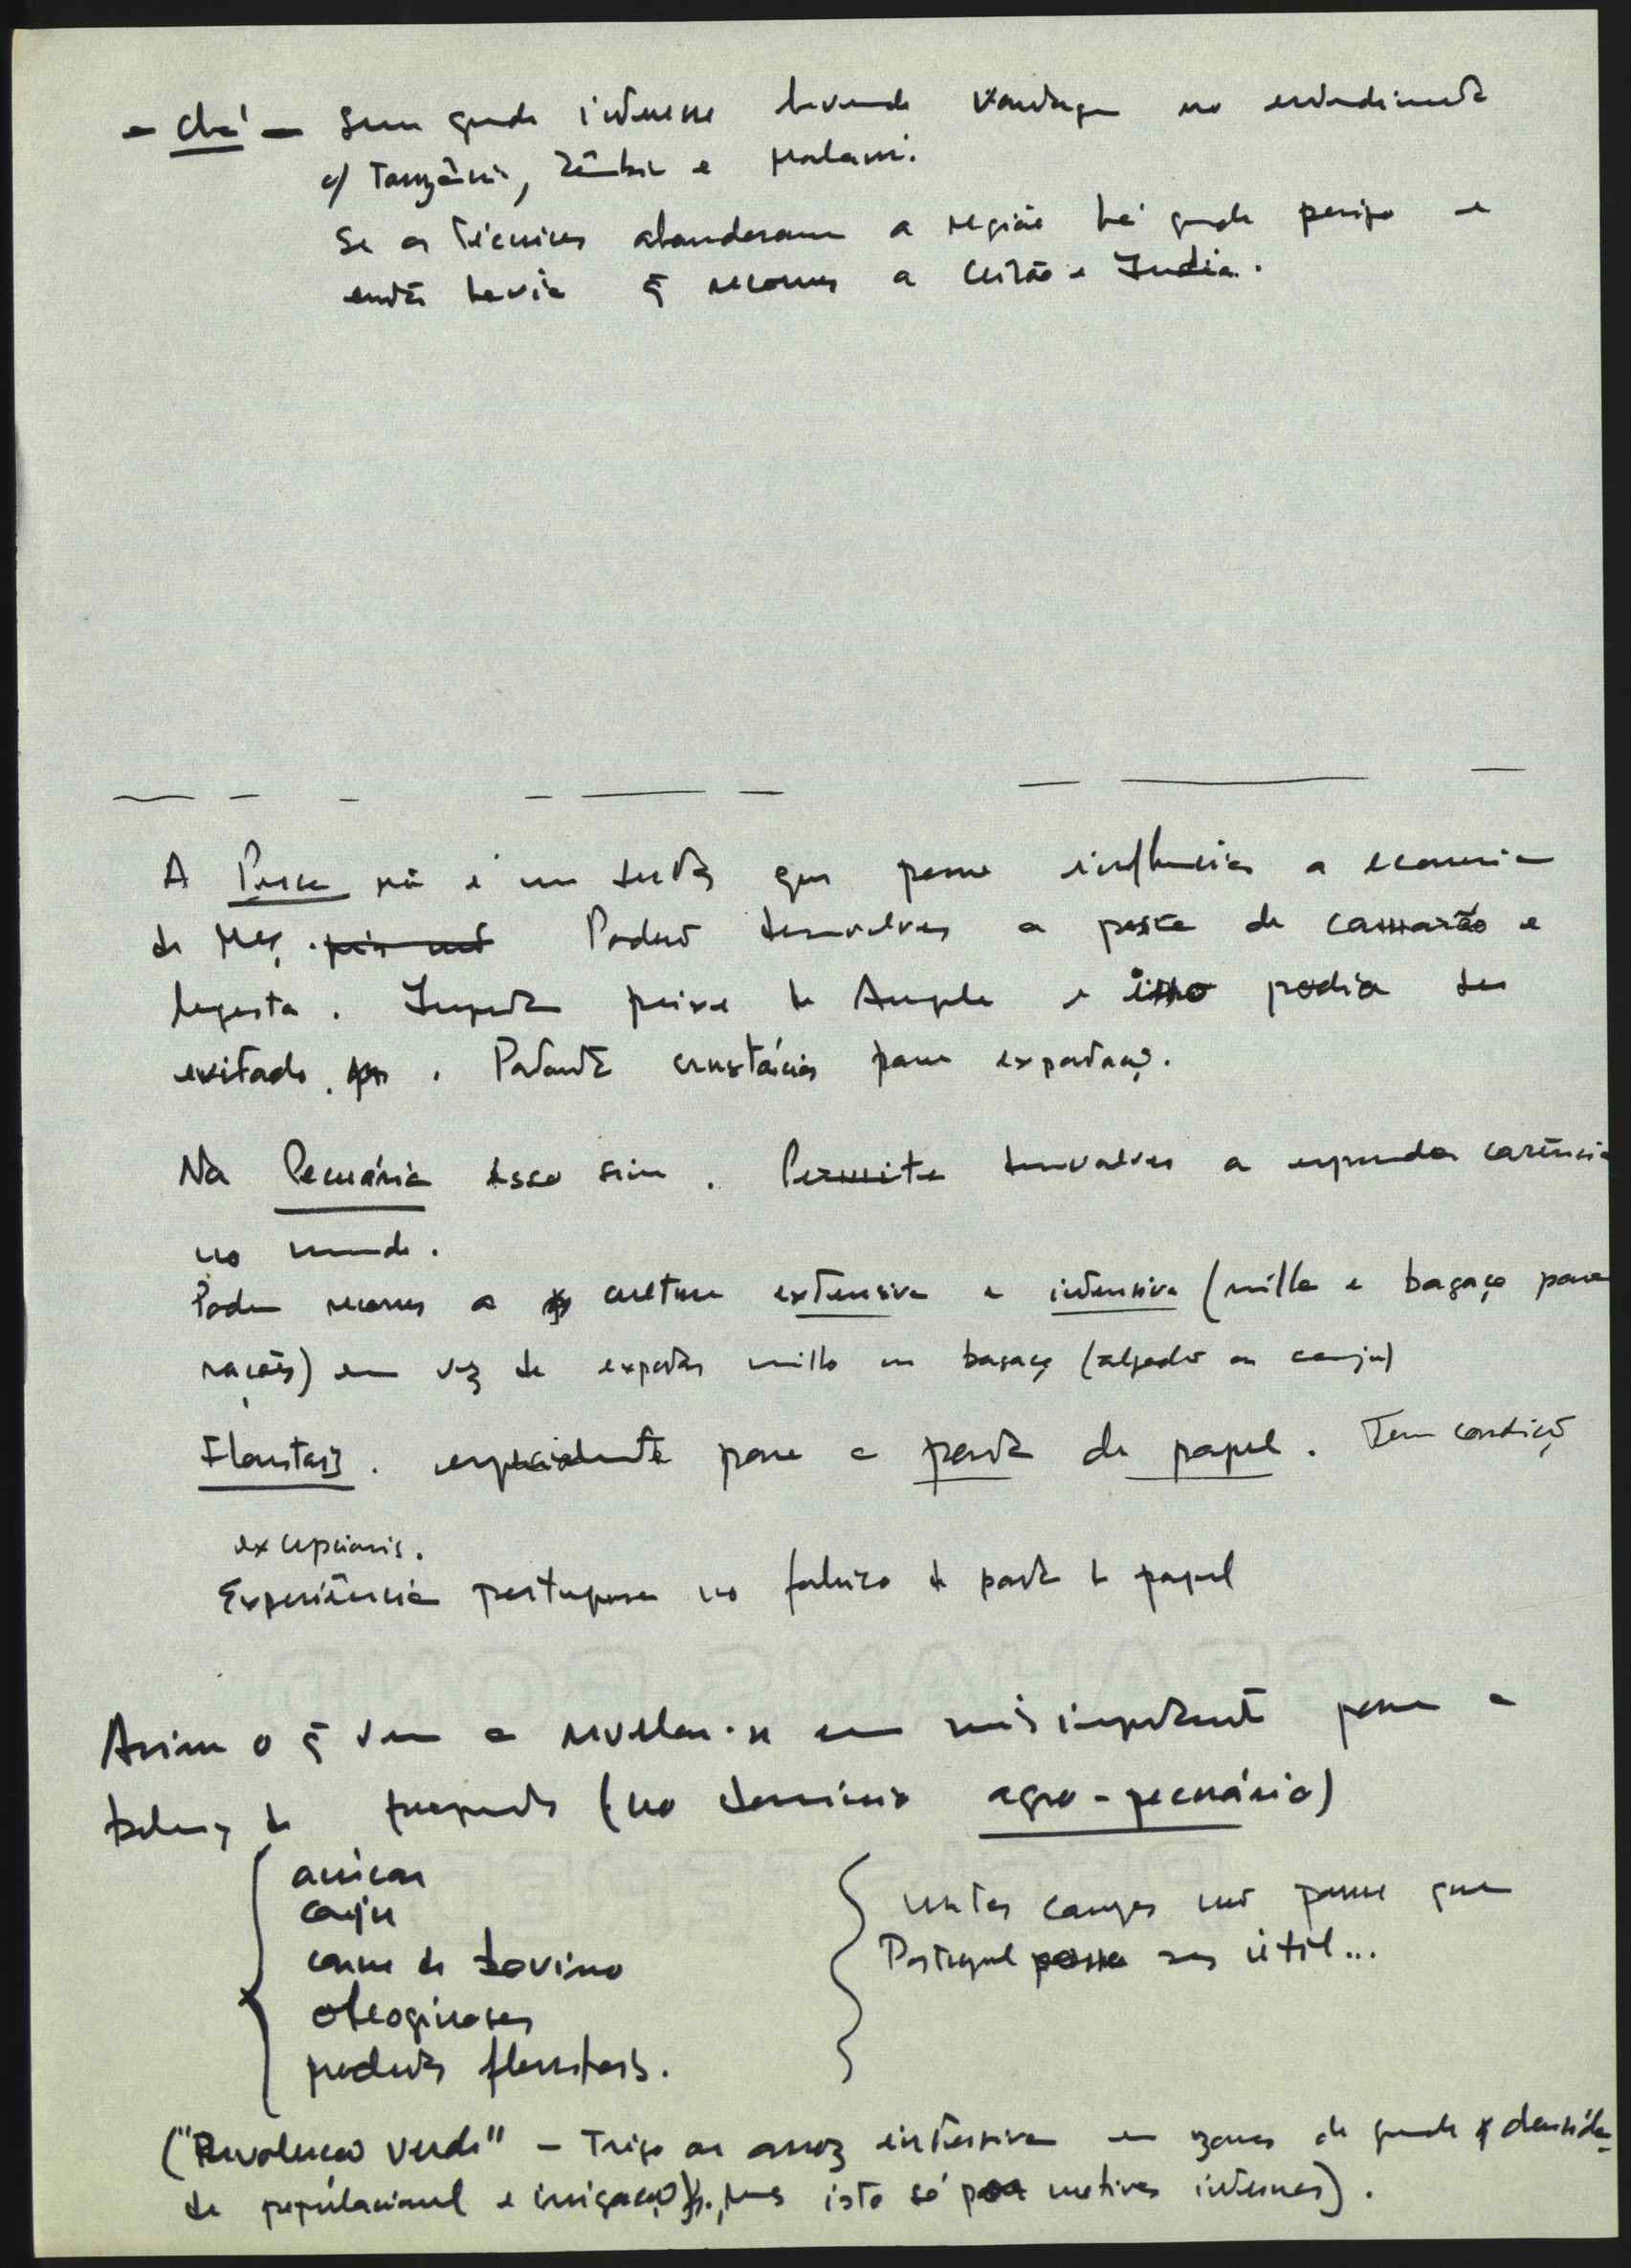 - Chá - Sem grande interesse havendo vantagem no entendimento
c/ Tanzânia, Zâmbia e Malawi.
Se os técnicos abandonarem a região há grande perigo e
então havia q̃ recorrer a Ceilão e India.
A Pesca não é um sector que possa influenciar a economia
de Moç. Poderá desenvolver a pesca de camarão e
lagosta. Importa peixe de Angola e isso podia ser
evitado. . Portanto crustácios para exportaç.
Na Pecuária isso sim. Permite desenvolver a carência
no mundo.
Podem recorrer a cultura extensiva e intensiva (milho e bagaço para
rações) em vez de exportar milho ou bagaço (algodão ou caju)
Florestas. especialmente para a pasta de papel. Tem condiçõ
excepcionais.
Experiência portuguesa no fabrico de pasta de papel
Assim o q̃ vem a revelar-se com mais importante para a
balanç de pagamentos (no domínio agro-pecuário)
açúcar
caju
carne de bovino
oleoginosas
produtos florestais.
nestes campos não parece que
Portugal possa ser útil...
("Revolução Verde" - Trigo ou arroz intensiva em zonas de grande densida_
de populacional e irrigação), mas isto só por motivos internos).